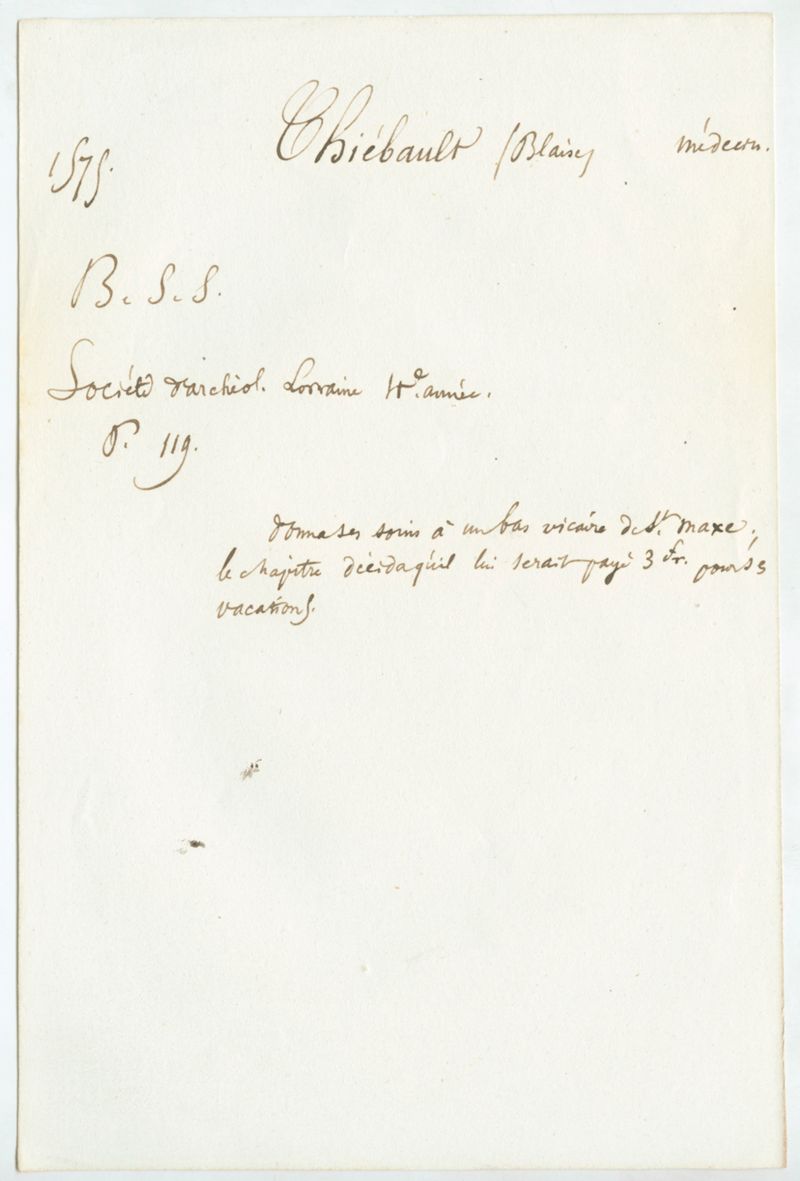 1575.
Thiébault (Blaise) médecin.
B. S. S.
Société d'archéol. Lorraine 4e. année.
P. 119.
donna ses soins à un bas vicaire de St. Maxe;
le chapitre décida qu'il lui serait payé 3 fr. pour ses
vacations.